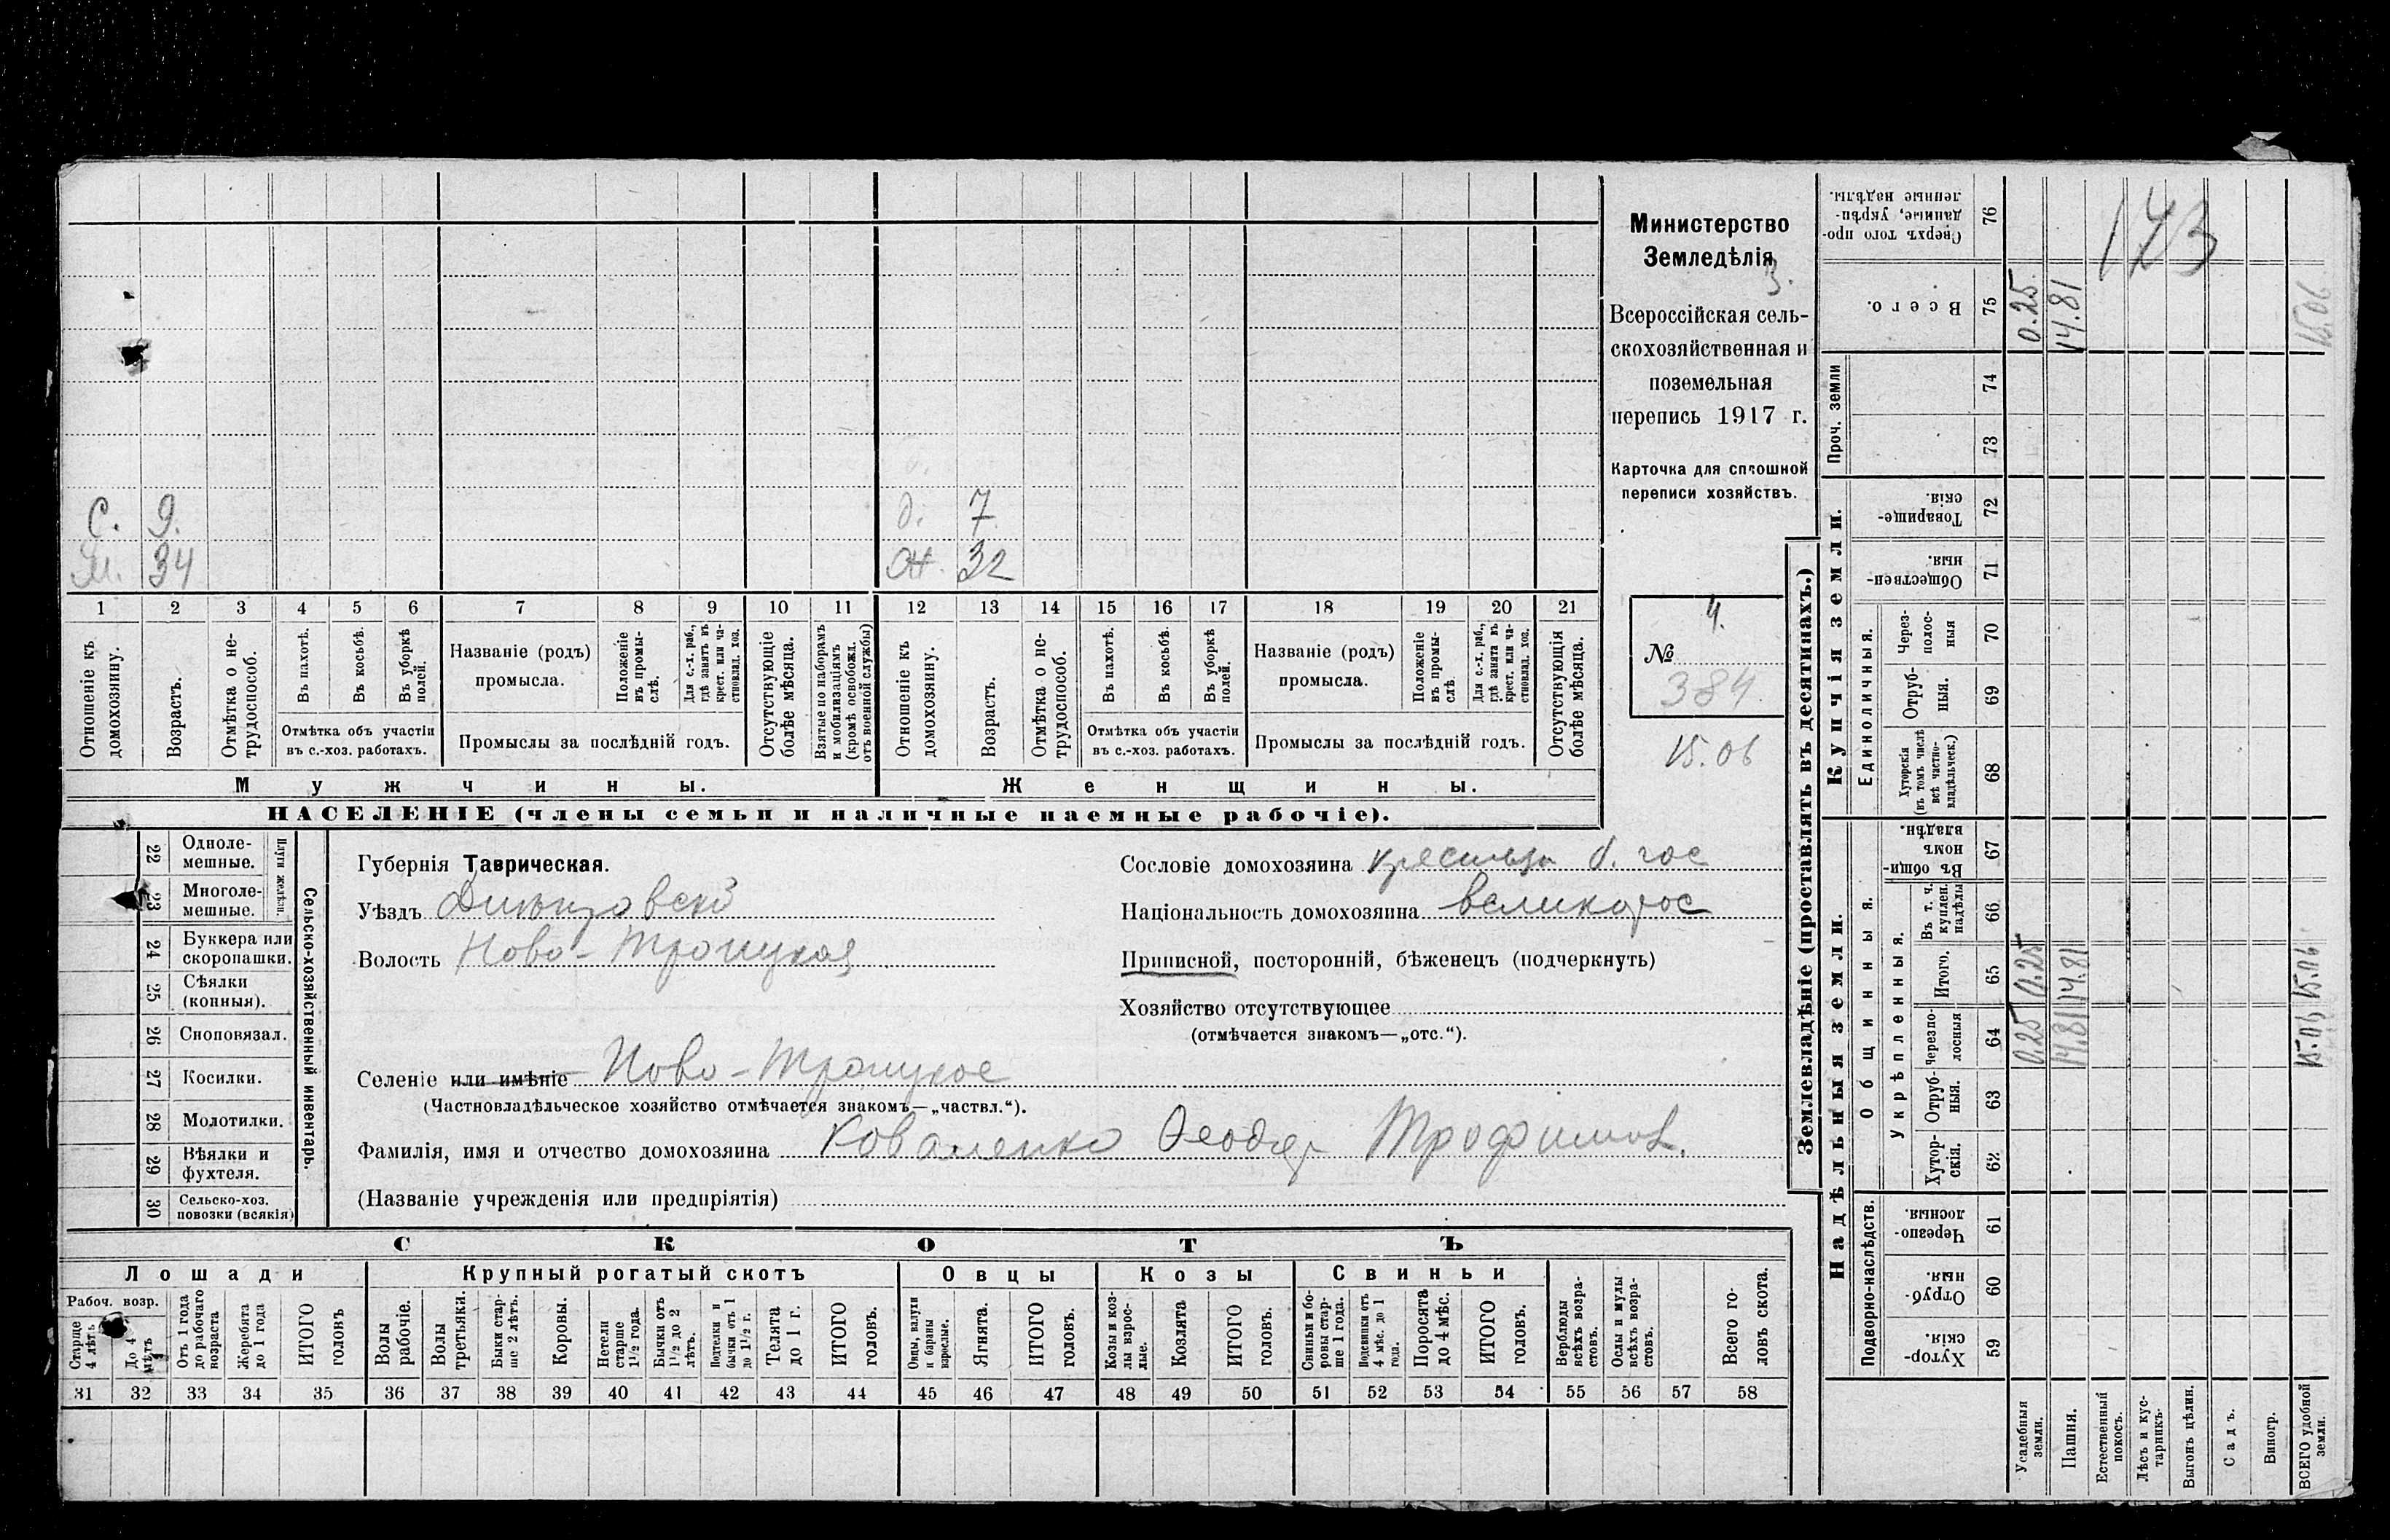 С. 9. д. 7
М. 34 Ж. 32
1 2 3 4 5 6 7 8 9 10 11 12 13 14 15 16 17 18 19 20 21
Отношеніе къ домохозяину.
Возрастъ.
Отмѣтка о не-трудоспособ.
Въ пахотѣ.
Въ косьбѣ.
Въ уборкѣ полей.
Отмѣтка объ участіи
въ с.-хоз. работахъ.
Названіе (родъ)
промысла.
Положеніе въ промы-слѣ.
Для с.-х. раб., гдѣ занятъ въ крест. или ча-стновлад. хоз.
Промыслы за послѣдній годъ.
Отсутствующіе болѣе мѣсяца.
Взятые по наборамъ и мобилизаціямъ (кромѣ освобожд. отъ военной службы)
Отношеніе къ домохозяину.
Возрастъ.
Отмѣтка о не-трудоспособ.
Въ пахотѣ.
Въ косьбѣ.
Въ уборкѣ полей.
Отмѣтка объ участіи
въ с.-хоз. работахъ.
Названіе (родъ)
промысла.
Положеніе въ промы-слѣ.
Для с.-х. раб., гдѣ занята въ крест. или ча-стновлад. хоз.
Промыслы за послѣдній годъ.
Отсутствующія болѣе мѣсяца.
Мужчины.
Женщины.
НАСЕЛЕНІЕ (члены семьи и наличные наемные рабочіе).
Министерство
Земледѣлія
3.
Всероссійская сель-
скохозяйственная и
поземельная
перепись 1917 г.
Карточка для сплошной
переписи хозяйствъ.
4.
№
384
15.06
22 Одноле-мешные.
23 Многоле-мешные.
Плуги желѣзн.
24 Буккера или скоропашки.
25 Сѣялки (конныя).
26 Сноповязал.
27 Косилки.
28 Молотилки.
29 Вѣялки и фухтеля.
30 Сельско-хоз. повозки (всякія)
Сельско-хозяйственный инвентарь.
Губернія Таврическая.
Уѣздъ Днѣпровскій
Волость Ново-Троицкая
Селеніе или имѣніе Ново-Троицкое
(Частновладѣльческое хозяйство отмѣчается знакомъ—„частвл.“).
Фамилія, имя и отчество домохозяина Коваленко Феодор Трофимов.
(Названіе учрежденія или предпріятія)
Сословіе домохозяина б. гос
Національность домохозяина великорос
Приписной, посторонній, бѣженецъ (подчеркнуть)
Хозяйство отсутствующее
(отмѣчается знакомъ—„отс.“).
СКОТЪ
Лошади
Крупный рогатый скотъ
Овцы
Козы
Свиньи
Рабоч. возр.
Старше 4 лѣтъ
До 4 лѣтъ
Отъ 1 года до рабочаго возраста
Жеребята до 1 года
ИТОГО головъ
Волы рабочіе.
Волы третьяки.
Быки стар-ше 2 лѣтъ.
Коровы.
Нетели старше 1½ года.
Бычки отъ 1½ до 2 лѣтъ.
Подтелки и бычки отъ 1 до 1½ г.
Телята до 1 г.
ИТОГО головъ.
Овцы, валухи и бараны взрослые.
Ягнята.
ИТОГО головъ.
Козы и коз-лы взрос-лые.
Козлята
ИТОГО головъ.
Свиньи и бо-ровы стар-ше 1 года.
Подсвинки отъ 4 мѣс. до 1 года.
Поросята до 4 мѣс.
ИТОГО головъ.
Верблюды всѣхъ возра-стовъ.
Ослы и мулы всѣхъ возра-стовъ.
Всего го-ловъ скота.
31 32 33 34 35 36 37 38 39 40 41 42 43 44 45 46 47 48 49 50 51 52 53 54 55 56 57 58
Землевладѣніе (проставлять въ десятинахъ.)
Надѣльныя земли.
Купчія земли.
Проч. земли
Подворно-наслѣдств.
Общинныя.
Укрѣпленныя.
Единоличныя.
Хутор-скія. 59
Отруб-ныя. 60
Черезпо-лосныя. 61
Хутор-скія. 62
Отруб-ныя. 63
Черезпо-лосныя 64
Итого. 65
Въ т. ч. куплен. надѣлы 66
Въ общин-номъ владѣн. 67
Хуторскія (въ томъ числѣ всѣ частно-владѣльческ.) 68
Отруб-ныя. 69
Через-полос-ныя 70
Обществен-ныя 71
Товарище-скія. 72
73
74
Всего. 75
Сверхъ того про-данные, укрѣп-ленные надѣлы. 76
Усадебныя земли. 0.25 0.25 0.25
Пашня. 14.81 14.81 14.81
Естественный покосъ.
Лѣсъ и кус-тарникъ.
Выгонъ цѣлин.
Садъ.
Виногр.
ВСЕГО удобной земли. 15.06 15.06 15.06
173